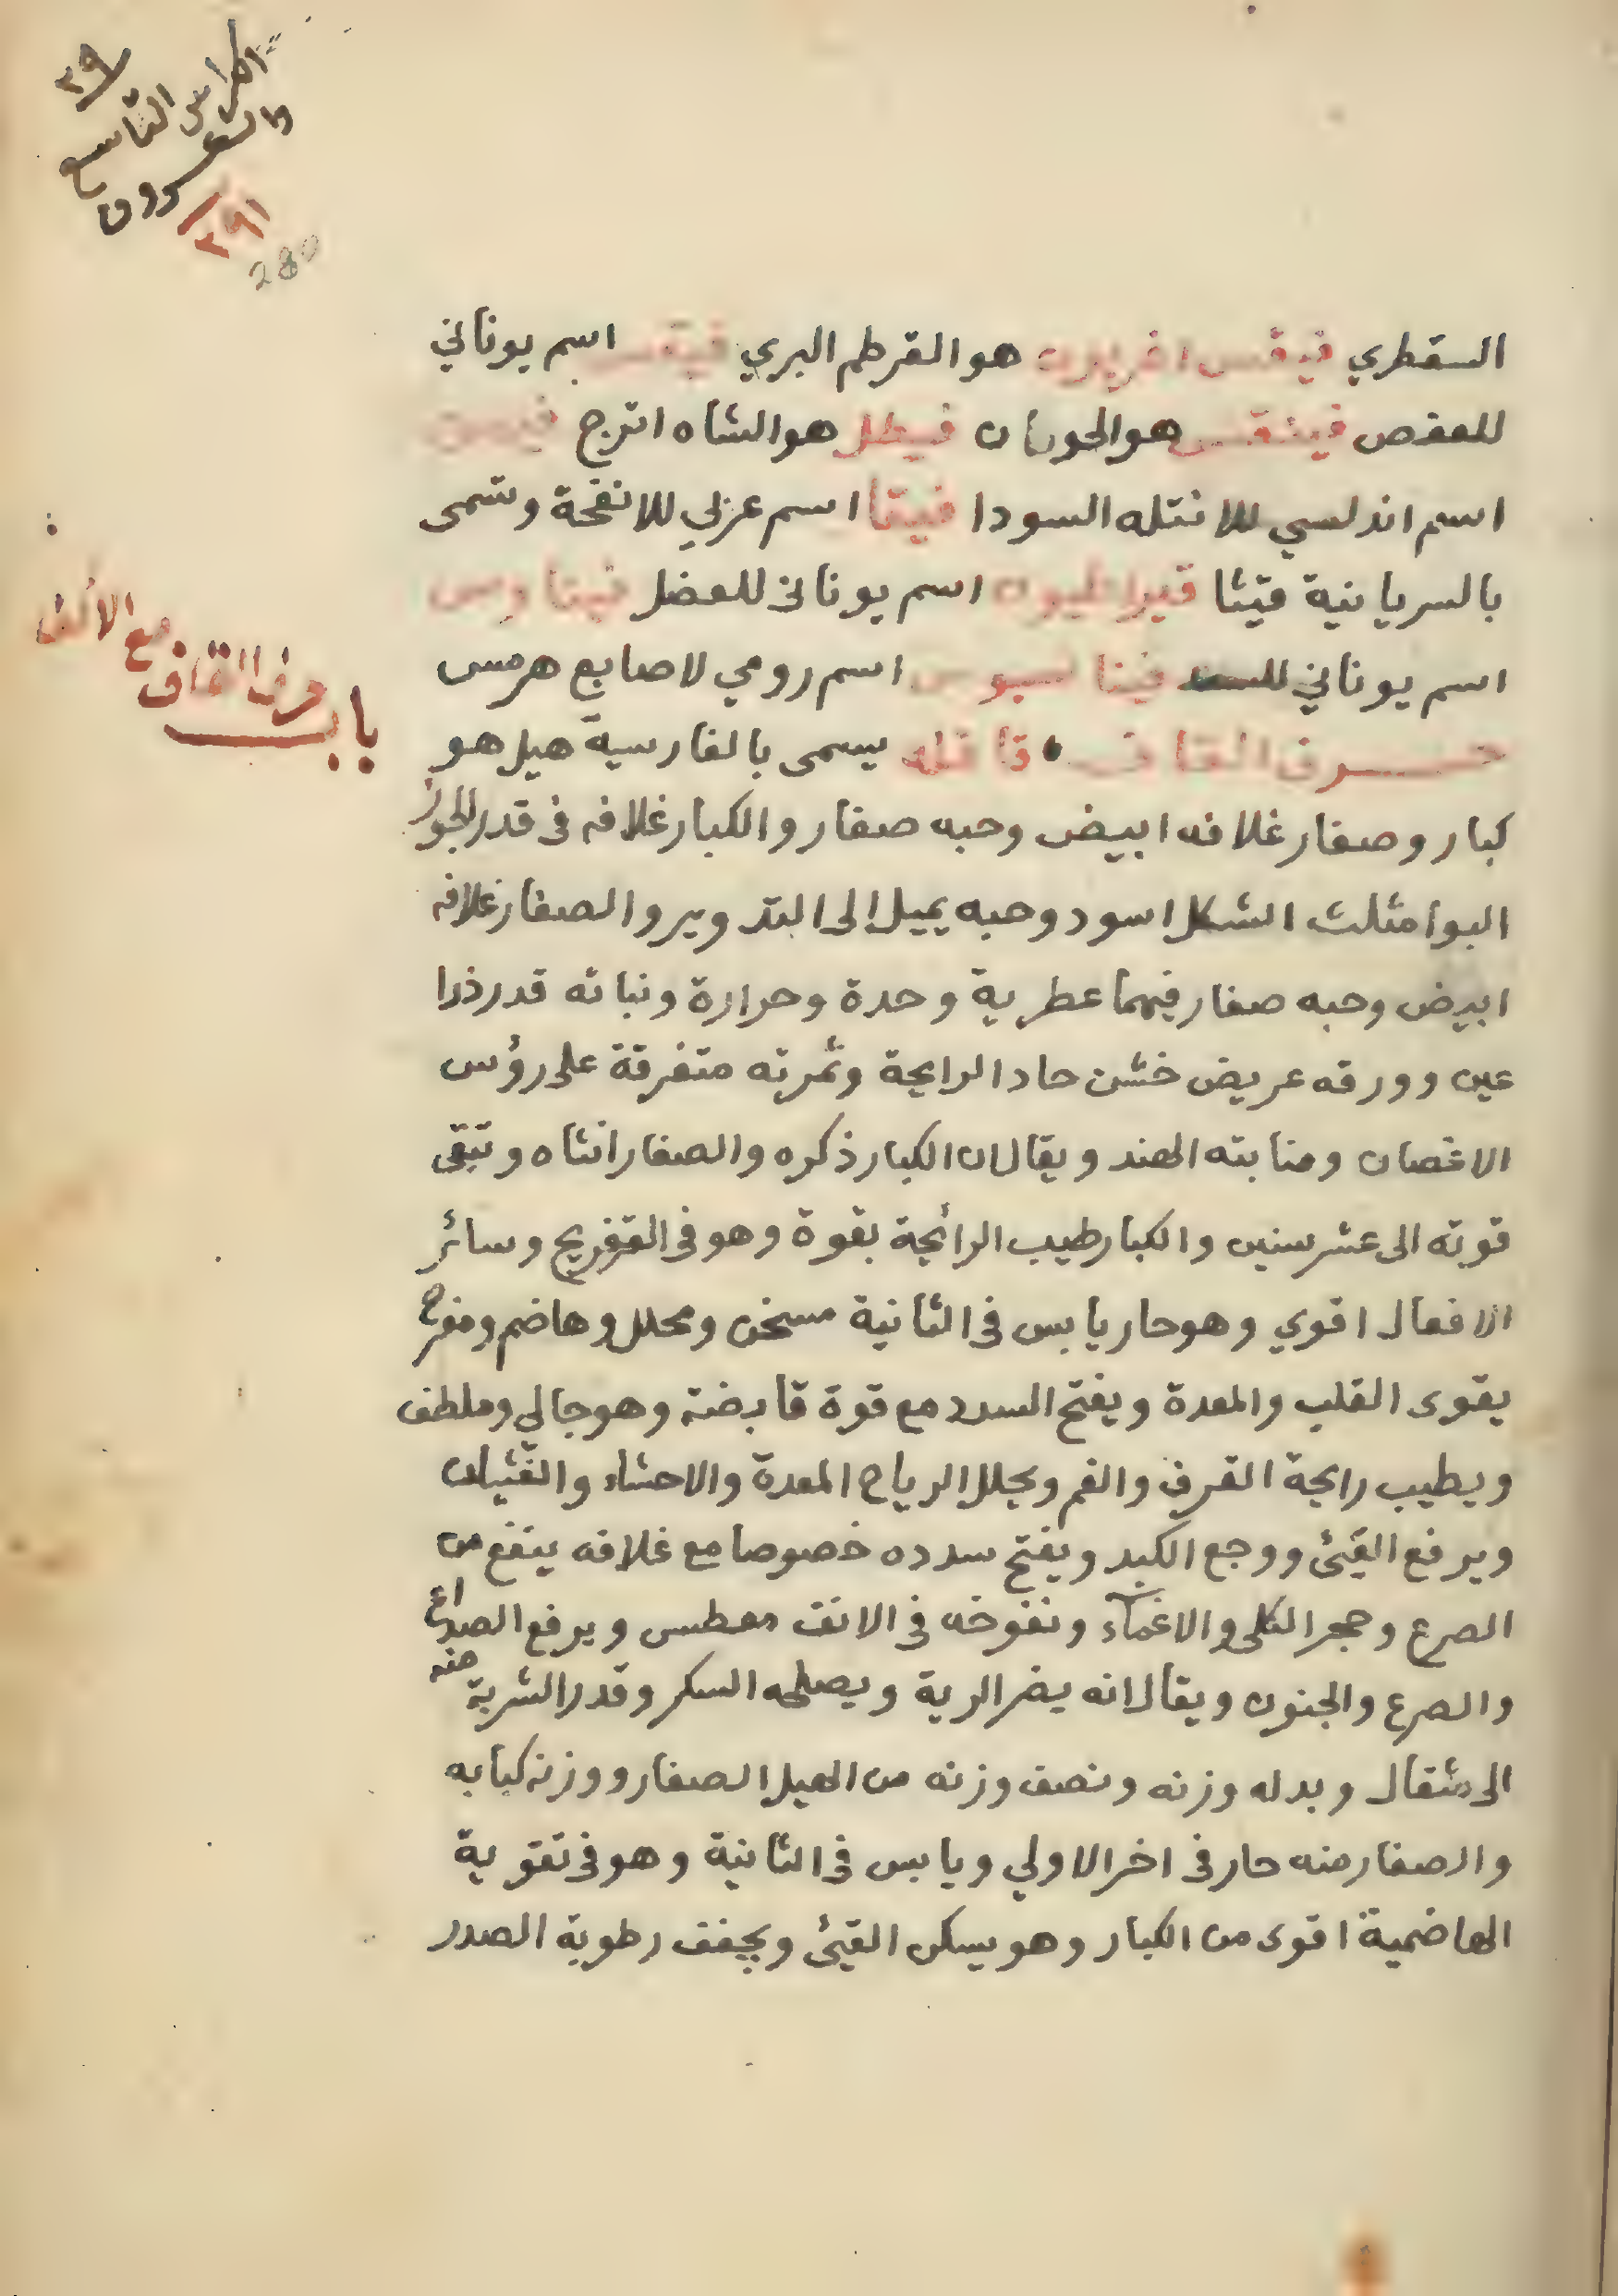 ٢٩
الكراس التاسع
والعشرون
٢٩١
280
السقطري فيقس اغريون هو القرطم البري اسم يوناني
للعفص فينقس هو الحومان فيطل هو الشاه اترج
اسم اندلسي للانتله السودا فيتا اسم عربي للانفحة وتسمى
بالسريانية قيثا اسم يوناني للعضل
اسم يوناني اسم رومي لاصابع هرمس
باب حرف القاف مع الالف
حرف القاف قاقله يسمى بالفارسية هيل هو
كبار وصغار غلافه ابيض وحبه صغار والكبار غلافه في قدر الجوز
البوا مثلث الشكل اسود وحبه يميل الى التدوير والصغار غلافه
ابيض وحبه صغار فيهما عطرية وحدة وحرارة ونباته قدر ذرا
عين وورقه عريض خشن حاد الرايحة وثمرته متفرقة على رؤس
الاغصان ومنابته الهند ويقال ان الكبار ذكره والصغار انثاه وتبقى
قوته الى عشر سنين والكبار طيب الرائحة بقوة وهو في التفريح وسائر
الافعال اقوي وهو حار يابس في الثانية مسخن ومحلل وهاضم ومفرح
يقوى القلب والمعدة ويفتح السدد مع قوة قابضة وهو جالي وملطف
ويطيب رايحة العرق والفم ويحلل الرياح المعدة والاحشاء والغثيان
ويرفع القيئ ووجع الكبد ويفتح سدده خصوصا مع غلافه ينفع من
الصرع وحجر الكلى والاغماء ونفوخه في الانف معطس ويرفع الصداع
والصرع والجنون ويقال انه يضر الرية ويصلحه السكر وقدر الشربة منه
الى مثقال وبدله وزنه ونصف وزنه من الهيل الصغار ووزنه كبابه
والصغار منه حار في اخر الاولي ويابس في الثانية وهو في تقوية
الهاضمية اقوى من الكبار وهو يسكن القيئ ويجفف رطوبة الصدر